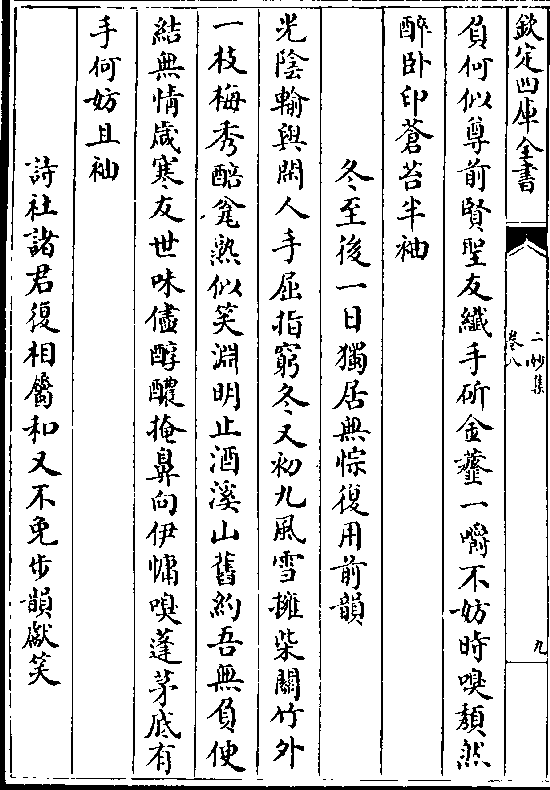 欽定四庫全書
二妙集
卷八
九
負何似尊前賢聖友纖手斫金虀一嚼不妨時嗅頽然
醉卧印蒼苔半袖
冬至後一日獨居無悰復用前韻
光陰輸與閑人手屈指窮冬又初九風雪擁柴關竹外
一枝梅秀醅瓮熟似笑淵明止酒溪山舊約吾無負便
結無情歳寒友世味儘醇醲掩鼻向伊慵嗅蓬茅底有
手何妨且袖
詩社諸君復相醻和又不免步韻獻笑